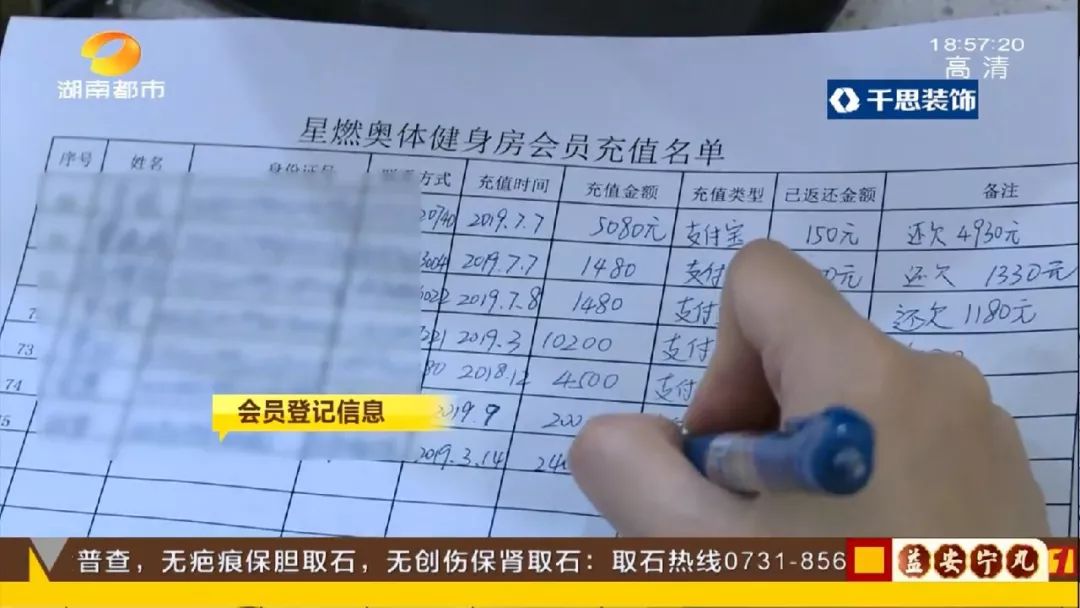 湖南都市
18:57:20
高清
千思装饰
星燃奥体健身房会员充值名单
序号 姓名 身份证号 联系方式 充值时间 充值金额 充值类型 已返还金额 备注
20740 2019.7.7 5080元 支付宝 150元 还欠 4930元
2019.7.7 1480 支付 还欠 1330元
2019.7.8 1480 支付 还欠 1180元
73 2019.3 10200 支付
74 2018.12 4500 支付
75 2019.9 200
2019.3.14
会员登记信息
普查，无疤痕保胆取石，无创伤保肾取石：取石热线0731-856
益安宁丸